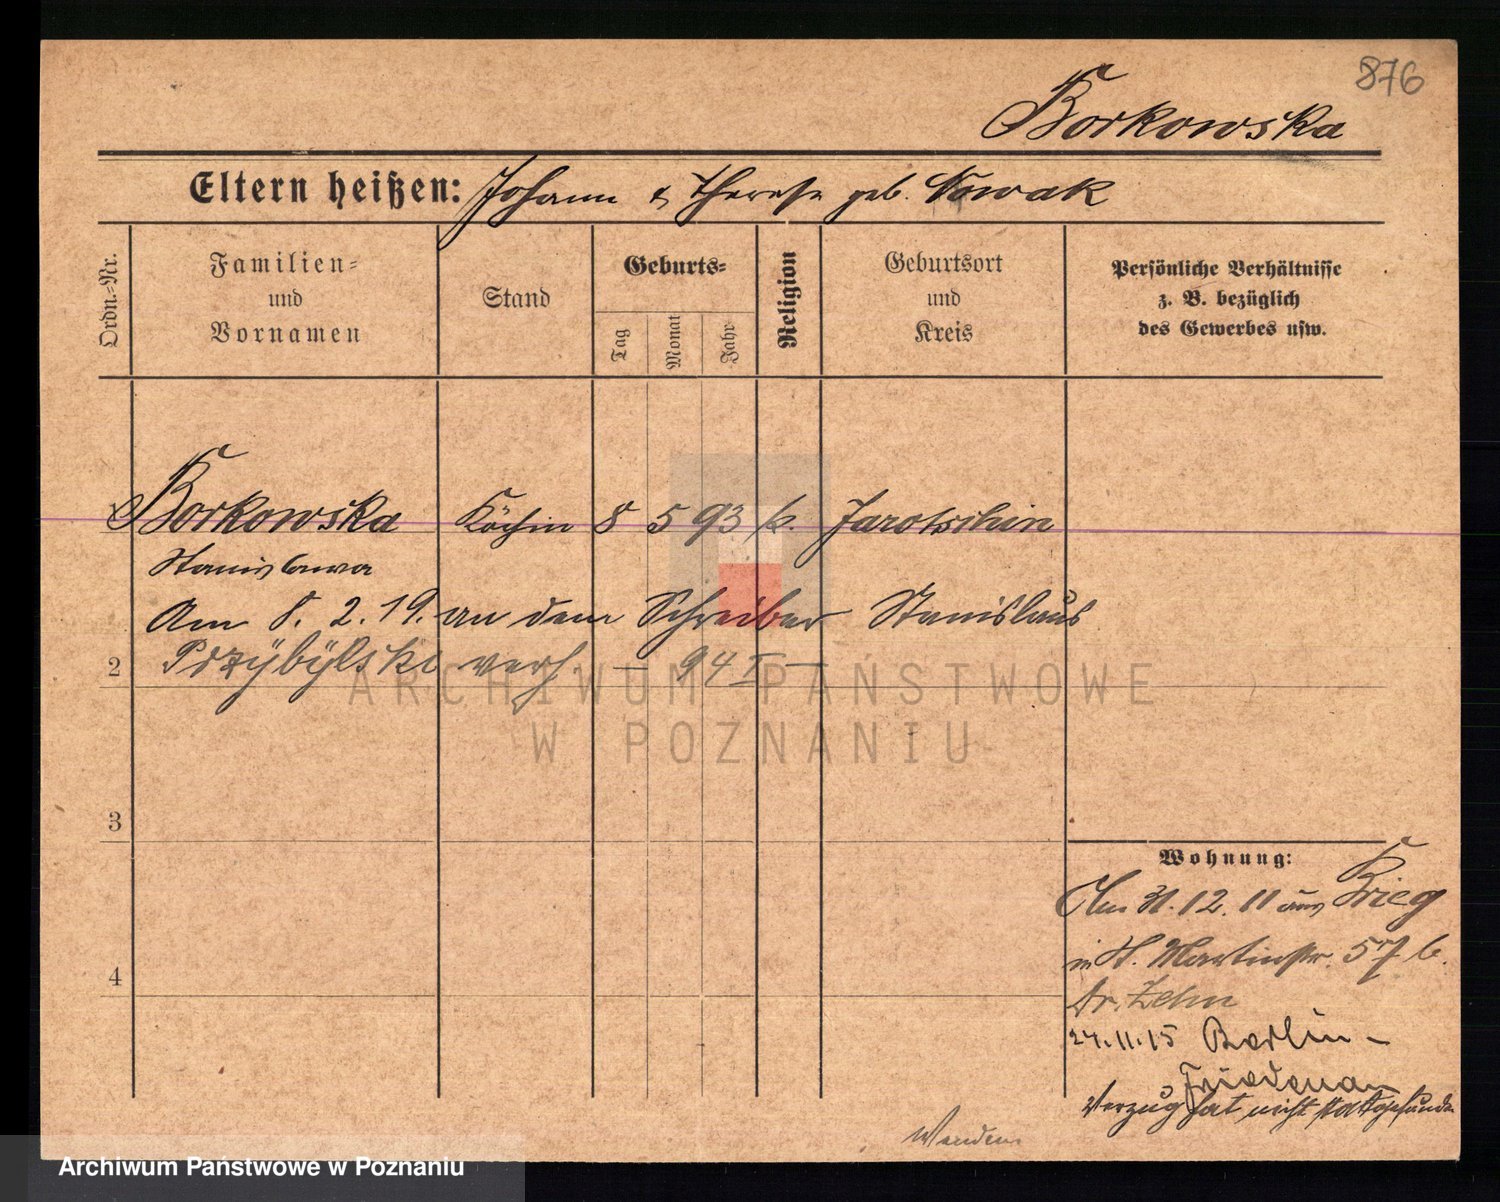 876
Borkowska
Eltern heißen: Johann & Therese geb. Nowak
Ordn.=Nr.
Familien=
und
Vornamen
Stand
Geburts=
Tag
Monat
Jahr
Religion
Geburtsort
und
Kreis
Persönliche Verhältnisse
z. B. bezüglich
des Gewerbes usw.
Borkowska Köchin 8 5 93 k. Jarotschin
Stanislawa
Am 8. 2. 19. an dem Schreiber Stanislaus
2 Przÿbÿlski verh — 94 I —
3
4
Wohnung:
Am 31. 12. 11 aus Brieg
in St. Martinstr. 57 b.
Dr. Zehn
24.11.15 Berlin-
Friedenau
Verzug hat nicht stattgefunden
Wenden
ARCHIWUM PAŃSTWOWE
W POZNANIU
Archiwum Państwowe w Poznaniu